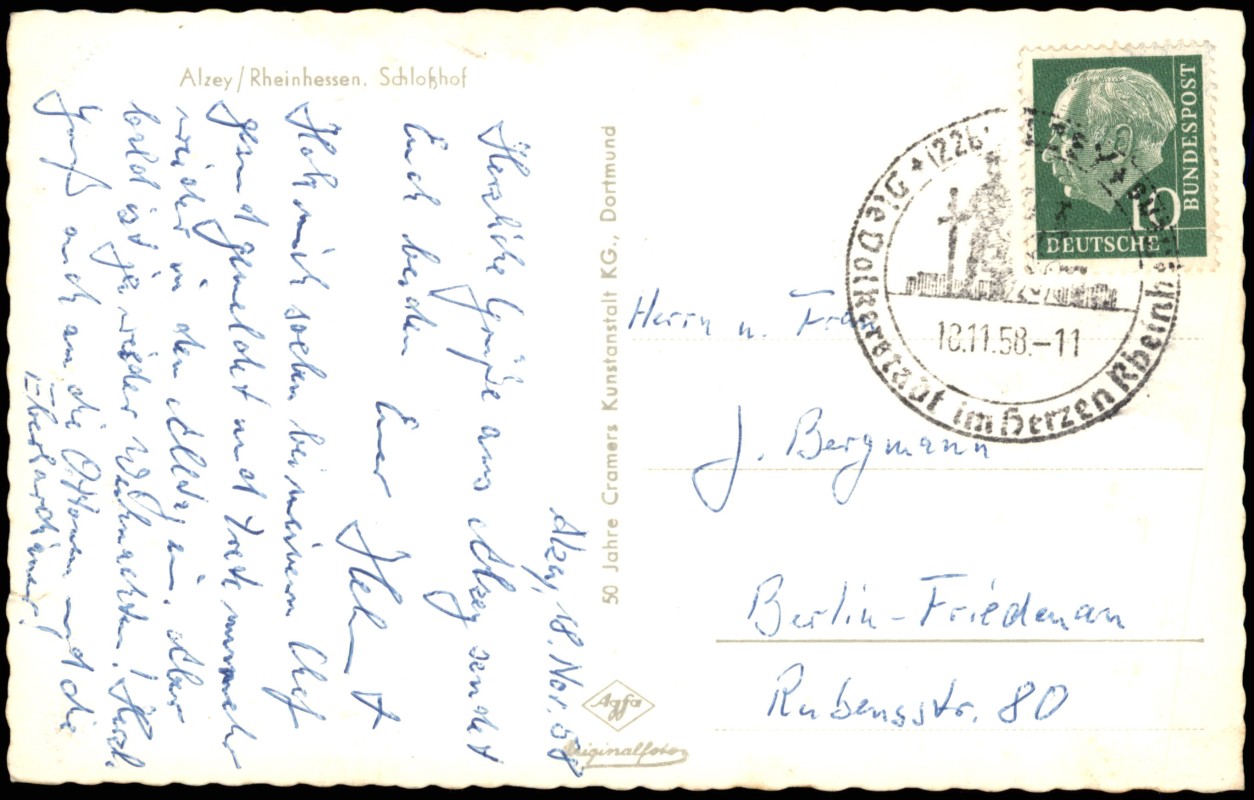 Alzey/Rheinhessen. Schloßhof
Alzey, 18. Nov. 58
Herzliche Grüße aus Alzey sendet
Euch beiden Euer
Hab mich soeben bei meinem Chef
gesund gemeldet und trete nunmehr
wieder in den Alltag ein. Aber
bald ist ja wieder Weihnachten! Herzl.
Gruß auch an die und die
50 Jahre Cramers Kunstanstalt KG., Dortmund
Agfa
Originalfoto
BUNDESPOST
10
DEUTSCHE
(22b)
Die Volkerstadt im Herzen Rheinh
18.11.58.-11
Herrn u. Frau
J. Bergmann
Berlin-Friedenau
Rubensstr. 80